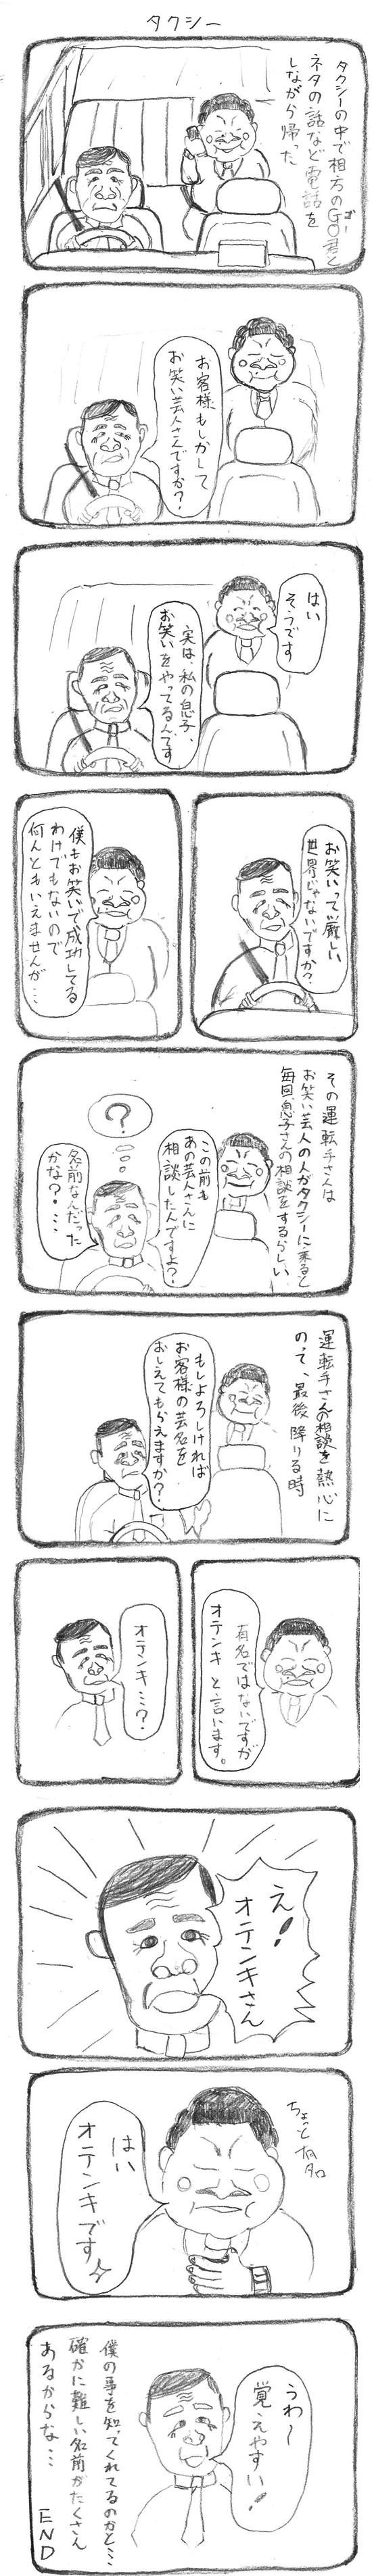 タクシー
タクシーの中で相方のGO君と
ゴー
ネタの話など電話を
しながら帰った
お客様もしかして
お笑い芸人さんですか？
はい
そうです
実は、私の息子、
お笑いをやってるんです
お笑いって厳しい
世界じゃないですか？
僕もお笑いで成功してる
わけでもないので
何んともいえませんが…
その運転手さんは
お笑い芸人の人がタクシーに乗ると
毎回息子さんの相談をするらしい
この前も
あの芸人さんに
相談したんですよ？
？
名前なんだった
かな？…
運転手さんの相談を熱心に
のって、最後降りる時
もしよろしければ
お客様の芸名を
おしえてもらえますか？
有名ではないですが
オテンキと言います。
オテンキ…？
え！
オテンキさん
ちょっと有名
はい
オテンキです
うわ〜
覚えやすい！
僕の事を知ってくれてるのかと…
確かに難しい名前がたくさん
あるからな…
END